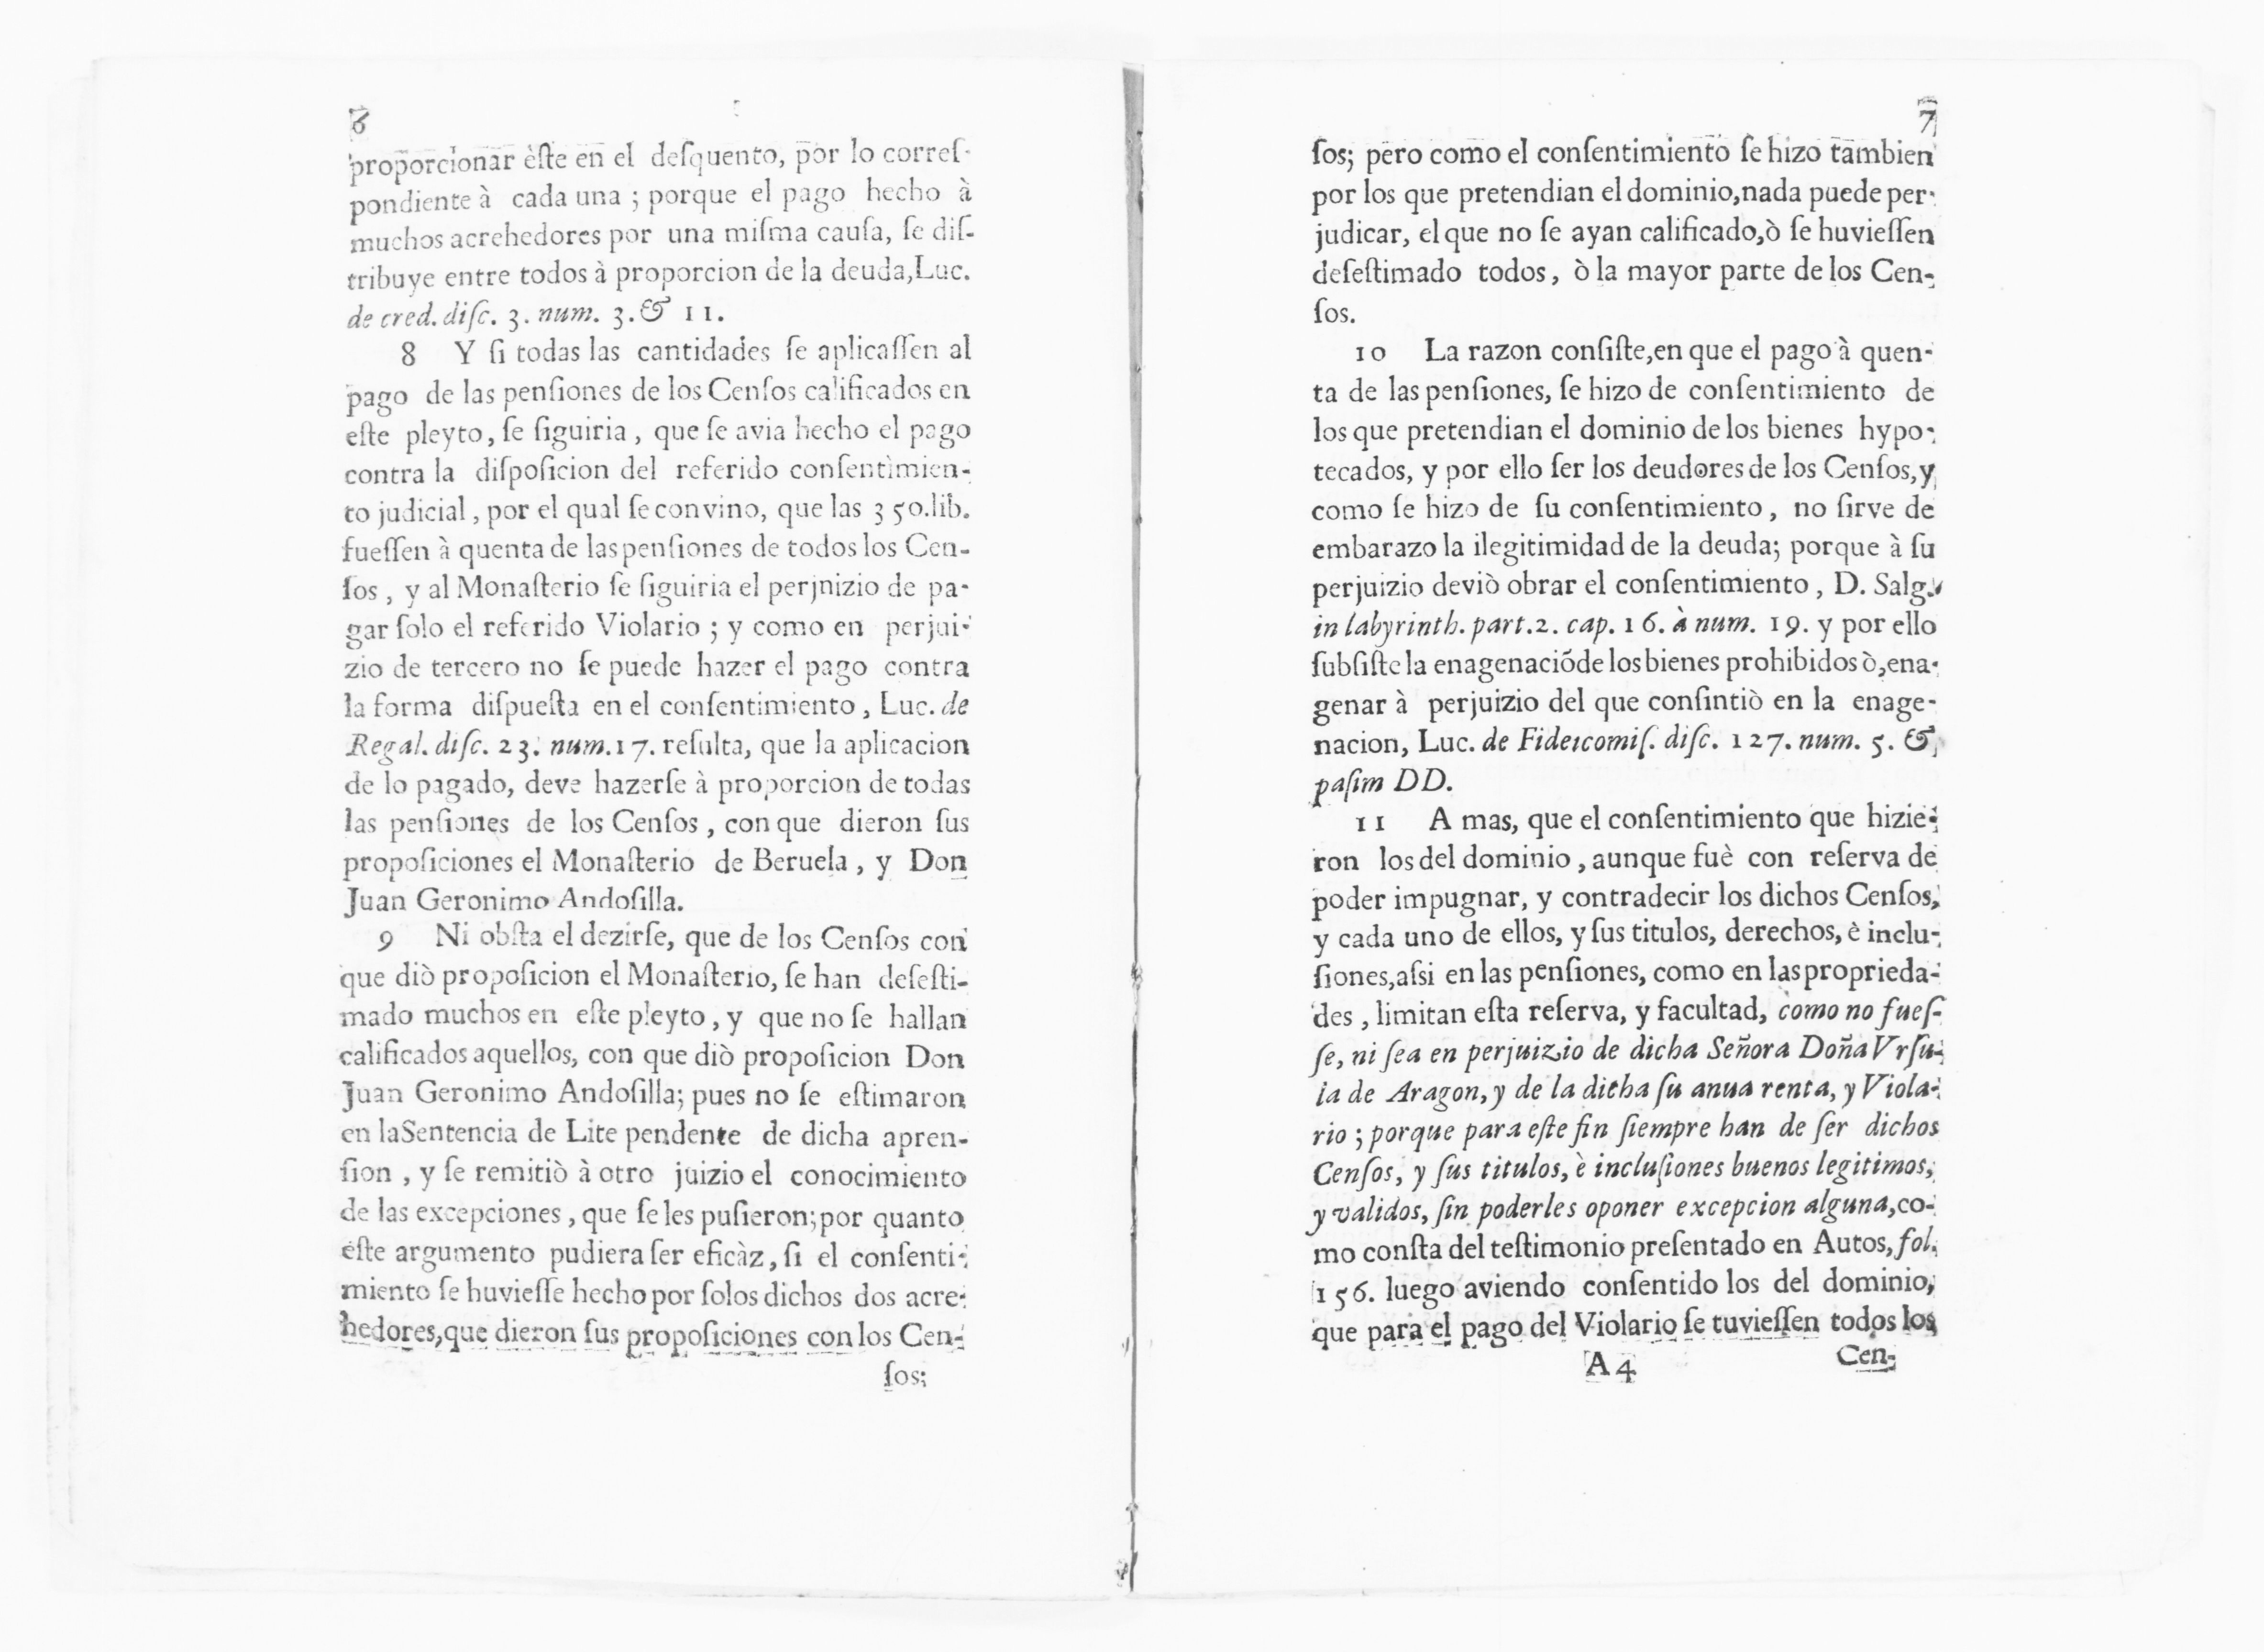 6
proporcionar èſte en el deſquento, por lo correſ-
pondiente à cada una ; porque el pago hecho à
muchos acrehedores por una miſma cauſa, ſe diſ-
tribuye entre todos à proporcion de la deuda, Luc.
de cred. diſc. 3. num. 3. & 11.
8 Y ſi todas las cantidades ſe aplicaſſen al
pago de las penſiones de los Cenſos calificados en
eſte pleyto, ſe ſiguiria, que ſe avia hecho el pago
contra la diſpoſicion del referido conſentimien-
to judicial, por el qual ſe convino, que las 350.lib.
fueſſen à quenta de las penſiones de todos los Cen-
ſos, y al Monaſterio ſe ſiguiria el perjnizio de pa-
gar ſolo el referido Violario ; y como en perjui-
zio de tercero no ſe puede hazer el pago contra
la forma diſpueſta en el conſentimiento, Luc. de
Regal. diſc. 23. num. 17. reſulta, que la aplicacion
de lo pagado, deve hazerſe à proporcion de todas
las penſiones de los Cenſos, con que dieron ſus
propoſiciones el Monaſterio de Beruela, y Don
Juan Geronimo Andoſilla.
9 Ni obſta el dezirſe, que de los Cenſos con
que diò propoſicion el Monaſterio, ſe han deſeſti-
mado muchos en eſte pleyto, y que no ſe hallan
calificados aquellos, con que diò propoſicion Don
Juan Geronimo Andoſilla; pues no ſe eſtimaron
en la Sentencia de Lite pendente de dicha apren-
ſion, y ſe remitiò à otro juizio el conocimiento
de las excepciones, que ſe les puſieron; por quanto
éſte argumento pudiera ſer eficàz, ſi el conſenti-
miento ſe huvieſſe hecho por ſolos dichos dos acre-
hedores, que dieron ſus propoſiciones con los Cen-
ſos;
7
ſos; pero como el conſentimiento ſe hizo tambien
por los que pretendian el dominio, nada puede per-
judicar, el que no ſe ayan calificado, ò ſe huvieſſen
deſeſtimado todos, ò la mayor parte de los Cen-
ſos.
10 La razon conſiſte, en que el pago à quen-
ta de las penſiones, ſe hizo de conſentimiento de
los que pretendian el dominio de los bienes hypo-
tecados, y por ello ſer los deudores de los Cenſos, y
como ſe hizo de ſu conſentimiento, no ſirve de
embarazo la ilegitimidad de la deuda; porque à ſu
perjuizio deviò obrar el conſentimiento, D. Salg.
in labyrinth. part. 2. cap. 16. à num. 19. y por ello
ſubſiſte la enagenaciõ de los bienes prohibidos ò, ena-
genar à perjuizio del que conſintiò en la enage-
nacion, Luc. de Fideicomiſ. diſc. 127. num. 5. &
paſim DD.
11 A mas, que el conſentimiento que hizie-
ron los del dominio, aunque fuè con reſerva de
poder impugnar, y contradecir los dichos Cenſos,
y cada uno de ellos, y ſus titulos, derechos, è inclu-
ſiones, aſsi en las penſiones, como en las proprieda-
des, limitan eſta reſerva, y facultad, como no fueſ-
ſe, ni ſea en perjuizio de dicha Señora Doña Vrſu-
la de Aragon, y de la dicha ſu anua renta, y Viola-
rio ; porque para eſte fin ſiempre han de ſer dichos
Cenſos, y ſus titulos, è incluſiones buenos legitimos,
y validos, ſin poderles oponer excepcion alguna, co-
mo conſta del teſtimonio preſentado en Autos, fol.
156. luego aviendo conſentido los del dominio,
que para el pago del Violario ſe tuvieſſen todos los
A4 Cen-